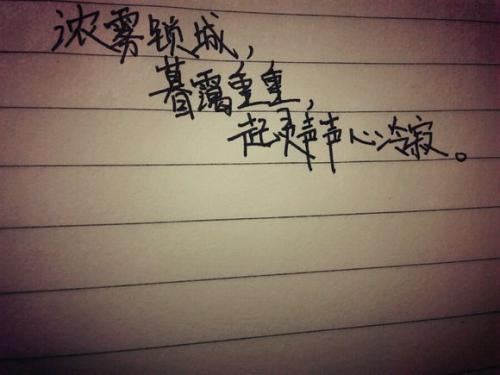 浓雾锁城，
暮霭重重，
起灵声声心冷寂。